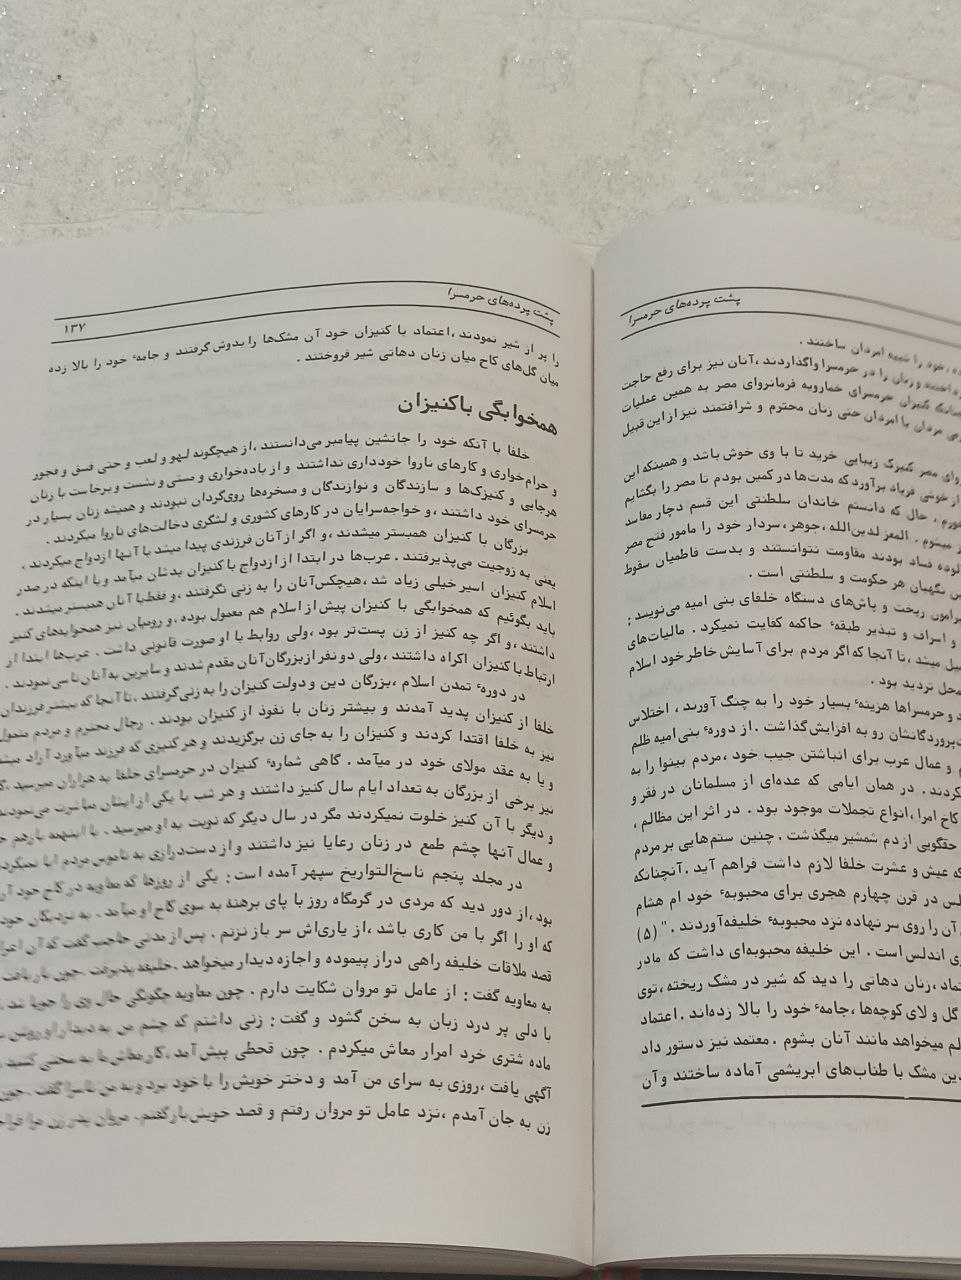 پشت پرده‌های حرمسرا
خود را شبیه امردان ساختند .
و زنان را در حرمسرا واگذاردند ،آنان نیز برای رفع حاجت
کنیزان حرمسرای خمارویه فرمانروای مصر به همین عملیات
مردان با امردان حتی زنان محترم و شرافتمند نیز از این قبیل
مصر کنیزک زیبایی خرید تا با وی خوش باشد و همینکه این
از خوشی فریاد برآورد که مدت‌ها در کمین بودم تا مصر را بگشایم
حال که دانستم خاندان سلطنتی این قسم دچار مفاسد
میشوم . المعز لدین‌الله ،جوهر ،سردار خود را مامور فتح مصر
فساد بودند مقاومت نتوانستند و بدست فاطمیان سقوط
نگهبان هر حکومت و سلطنتی است .
ریخت و پاش‌های دستگاه خلفای بنی امیه می‌نویسد :
و اسراف و تبذیر طبقهٔ حاکمه کفایت نمیکرد . مالیات‌های
میشد ،تا آنجا که اگر مردم برای آسایش خاطر خود اسلام
محل تردید بود .
و حرمسراها هزینهٔ بسیار خود را به چنگ آورند ، اختلاس
رو به افزایش گذاشت . از دورهٔ بنی امیه ظلم
و عمال عرب برای انباشتن جیب خود ،مردم بینوا را به
در همان ایامی که عده‌ای از مسلمانان در فقر و
کاخ امرا ،انواع تجملات موجود بود . در اثر این مظالم ،
حقگویی از دم شمشیر میگذشت . چنین ستم‌هایی بر مردم
که عیش و عشرت خلفا لازم داشت فراهم آید . آنچنانکه
در قرن چهارم هجری برای محبوبهٔ خود ام هشام
آن را روی سر نهاده نزد محبوبهٔ خلیفه آوردند . " (۵)
اندلس است . این خلیفه محبوبه‌ای داشت که مادر
زنان دهاتی را دید که شیر در مشک ریخته ،توی
گل و لای کوچه‌ها ،جامهٔ خود را بالا زده‌اند . اعتماد
میخواهد مانند آنان بشوم . معتمد نیز دستور داد
مشک با طناب‌های ابریشمی آماده ساختند و آن
پشت پرده‌های حرمسرا
۱۳۷
را پر از شیر نمودند ،اعتماد با کنیزان خود آن مشک‌ها را بدوش گرفتند و جامهٔ خود را بالا زده
میان گل‌های کاخ میان زنان دهاتی شیر فروختند .
همخوابگی با کنیزان
خلفا با آنکه خود را جانشین پیامبر می‌دانستند ،از هیچگونه لهو و لعب و حتی فسق و فجور
و حرام‌خواری و کارهای ناروا خودداری نداشتند و از باده‌خواری و مستی و نشست و برخاست با زنان
هرجایی و کنیزک‌ها و سازندگان و نوازندگان و مسخره‌ها روی‌گردان نبودند و همیشه زنان بسیار در
حرمسرای خود داشتند ،و خواجه‌سرایان در کارهای کشوری و لشگری دخالت‌های ناروا میکردند .
بزرگان با کنیزان همبستر میشدند ،و اگر از آنان فرزندی پیدا میشد با آنها ازدواج میکردند ،
یعنی به زوجیت می‌پذیرفتند . عرب‌ها در ابتدا از ازدواج با کنیزان بدشان میآمد و با اینکه در صدر
اسلام کنیزان اسیر خیلی زیاد شد ،هیچکس آنان را به زنی نگرفتند ،و فقط با آنان همبستر میشدند .
باید بگوئیم که همخوابگی با کنیزان پیش از اسلام هم معمول بوده ،و رومیان نیز همخوابه‌های کنیز
داشتند ،و اگر چه کنیز از زن پست‌تر بود ،ولی روابط با او صورت قانونی داشت . عرب‌ها ابتدا از
ارتباط با کنیزان اکراه داشتند ،ولی دو نفر از بزرگان آنان مقدم شدند و سایرین به آنان تاسی نمودند .
در دورهٔ تمدن اسلام ،بزرگان دین و دولت کنیزان را به زنی گرفتند ،تا آنجا که بیشتر فرزندان
خلفا از کنیزان پدید آمدند و بیشتر زنان با نفوذ از کنیزان بودند . رجال محترم و مردم متمول
نیز به خلفا اقتدا کردند و کنیزان را به جای زن برگزیدند و هر کنیزی که فرزند میآورد آزاد میشد
و یا به عقد مولای خود در میآمد . گاهی شمارهٔ کنیزان در حرمسرای خلفا به هزاران میرسید
نیز برخی از بزرگان به تعداد ایام سال کنیز داشتند و هر شب با یکی از ایشان مباشرت می‌نمودند
و دیگر با آن کنیز خلوت نمیکردند مگر در سال دیگر که نوبت به او میرسید . با اینهمه باز هم
و عمال آنها چشم طمع در زنان رعایا نیز داشتند و از دست‌درازی به ناموس مردم ابا نمیکردند
در مجلد پنجم ناسخ‌التواریخ سپهر آمده است : یکی از روزها که معاویه در کاخ خود
بود ،از دور دید که مردی در گرمگاه روز با پای برهنه به سوی کاخ او میآمد . به نزدیکان خود
که او را اگر با من کاری باشد ،از یاری‌اش سر باز نزنم . پس از مدتی حاجب گفت که آن
قصد ملاقات خلیفه راهی دراز پیموده و اجازه دیدار میخواهد . خلیفه پذیرفت . چون بار یافت
به معاویه گفت : از عامل تو مروان شکایت دارم . چون معاویه چگونگی حال وی را جویا شد
با دلی پر درد زبان به سخن گشود و گفت : زنی داشتم که چشم من به دیدار او روشن
ماده شتری خرد امرار معاش میکردم . چون قحطی پیش آمد ،کار معاش ما به سختی کشید
آگهی یافت ،روزی به سرای من آمد و دختر خویش را با خود برد و به من ناسزا گفت . چون
زن به جان آمدم ،نزد عامل تو مروان رفتم و قصد خویش بازگفتم . مروان پدر زن مرا